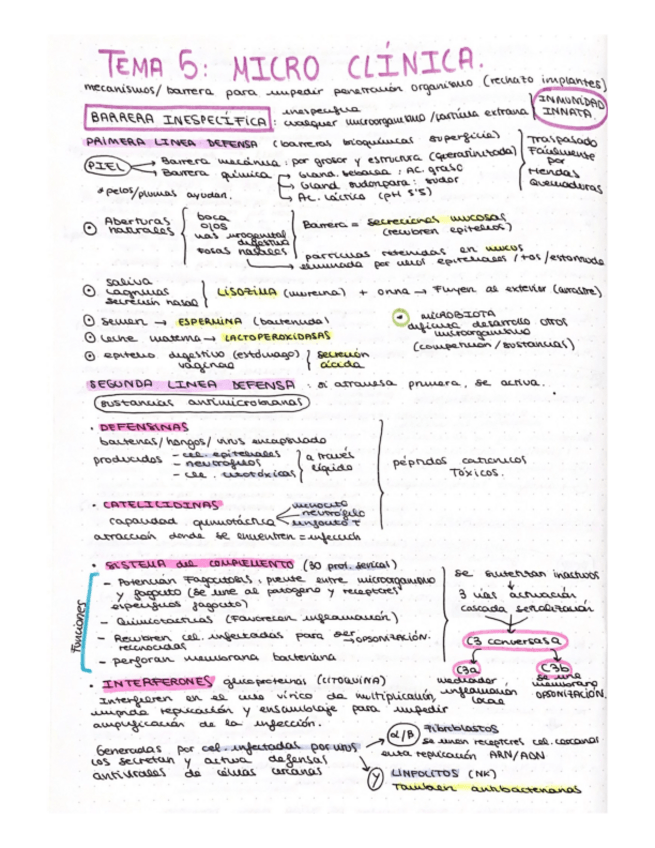 TEMA 5: MICRO CLÍNICA.
mecanismos/barrera para impedir penetración organismo (rechazo implantes)
BARRERA INESPECÍFICA: inespecífica cualquier microorganismo/partícula extraña
INMUNIDAD INNATA
PRIMERA LINEA DEFENSA (barreras bioquímicas superficie)
PIEL → Barrera mecánica: por grosor y estructura (queratinizada)
→ Barrera química → Gland. sebacea: AC. graso
→ Gland sudorípara: sudor
→ Ac. láctico (pH 5'5)
* pelos/plumas ayudan.
Traspasado
Facilmente
por
Heridas
Quemaduras
Aberturas naturales
boca
ojos
vias urogenital
digestiva
fosas nasales
Barrera = secreciones mucosas
(recubren epitelios)
partículas retenidas en mucus
eliminada por cilios epiteliales/tos/estornudo
saliva
lágrimas
secreción nasal
LISOZIMA (mureina) + orina → Fluyen al exterior (arrastre)
Semen → ESPERMINA (bactericida)
Leche materna → LACTOPEROXIDASAS
epitelio digestivo (estómago)
vaginal
secreción
ácida
MICROBIOTA
dificulta desarrollo otros
microorganismo
(competición/sustancias)
SEGUNDA LINEA DEFENSA: si atraviesa primera, se activa.
sustancias antimicrobianas
· DEFENSINAS
bacterias/hongos/virus encapsulado
producidos - cel. epiteliales
- neutrófilos
- cel. citotóxicas
a través
lípido
péptidos cationicos
Tóxicos.
· CATELICIDINAS
capacidad quimiotáctica
monocito
neutrófilo
linfocito T
atracción donde se encuentren = infección
· SISTEMA del COMPLEMENTO (30 prot. sericas)
Funciones
- Potencian Fagocitosis, puente entre microorganismo
y fagocito (se une al patogeno y receptores
especificos fagocito)
- Quimiotacticas (Favorecen inflamación)
- Recubren cel. infectadas para ser reconocidas → OPSONIZACIÓN.
- perforan membrana bacteriana
se sintetizan inactivos
3 vias activación
cascada señalización
C3 convertasa
C3a
mediador
inflamación
local
C3b
se une
membrana
OPSONIZACIÓN.
· INTERFERONES glucoproteinas (CITOQUINA)
Interfieren en el ciclo vírico de multiplicación,
replicación y ensamblaje para impedir
amplificación de la infección.
Generadas por cel. infectadas por virus
los secretan y activa defensas
antivirales de células cercanas
α/β Fibroblastos
se unen receptores cel. cercanas
evita replicación ARN/ADN
γ LINFOCITOS (NK)
Tambien antibacterianas